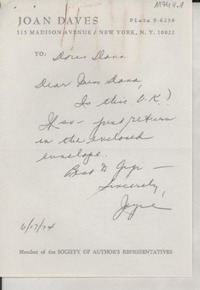 JOAN DAVES
PLaza 9-6250
515 MADISON AVENUE / NEW YORK, N. Y. 10022
TO: Doris Dana
Dear Miss Dana,
Is this O.K.?
If so - just return
in the enclosed
envelope.
Best to
Sincerely,
Joyce
6/17/74
Member of the SOCIETY OF AUTHOR'S REPRESENTATIVES